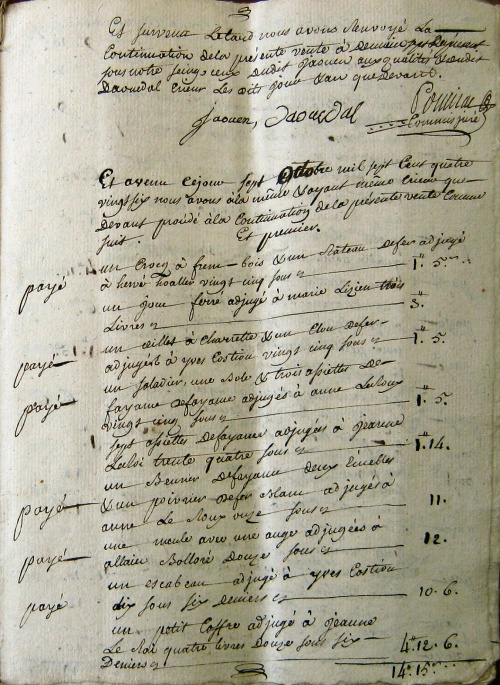 Et survenu Le tard nous avons Renvoyé La
Continuation dela présente vente à Demein
sous notre seing ceux dudit Jaouen aux qualités & dudit
Daouedal Crieur Les dits jour & an que Devant.
Jaouen, Daouedal
Commissaire
Et avenu cejour sept octobre mil sept Cent quatre
vingt six nous avons ala même & ayant même Crieur que
Devant procédé àla Continuation de la présente vente Comme
suit. Et premier.
un Crocq à frem-bois & un Râteau defer adjugé
payé à hervé hoallec vingt cinq sous 1" 5"
un joue ferré adjugé à marie Lizien trois
Livres 3"
un à Charrette & un Clou defer
payé adjugés à yves Costiou vingt cinq sous 1. 5.
un saladier, une Bole & trois assiettes De
payé fayance defayance adjugés à anne
vingt cinq sous 1" 5.
sept assiettes defayance adjugées à Jeanne
trente quatre sous 1" 14.
un Beurier defayance deux Ecuelles
payé & un poivrier defer Blanc adjugés à
anne Le Roux onze sous 11.
une meule avec une auge adjugées à
payé allain Bolloré Douze sous 12.
un escabeau adjugé à yves Costiou
payé dix sous six deniers 10. 6.
un petit Coffre adjugé à Jeanne
Le quatre livres Douze sous six
Deniers 4" 12. 6.
14" 15"